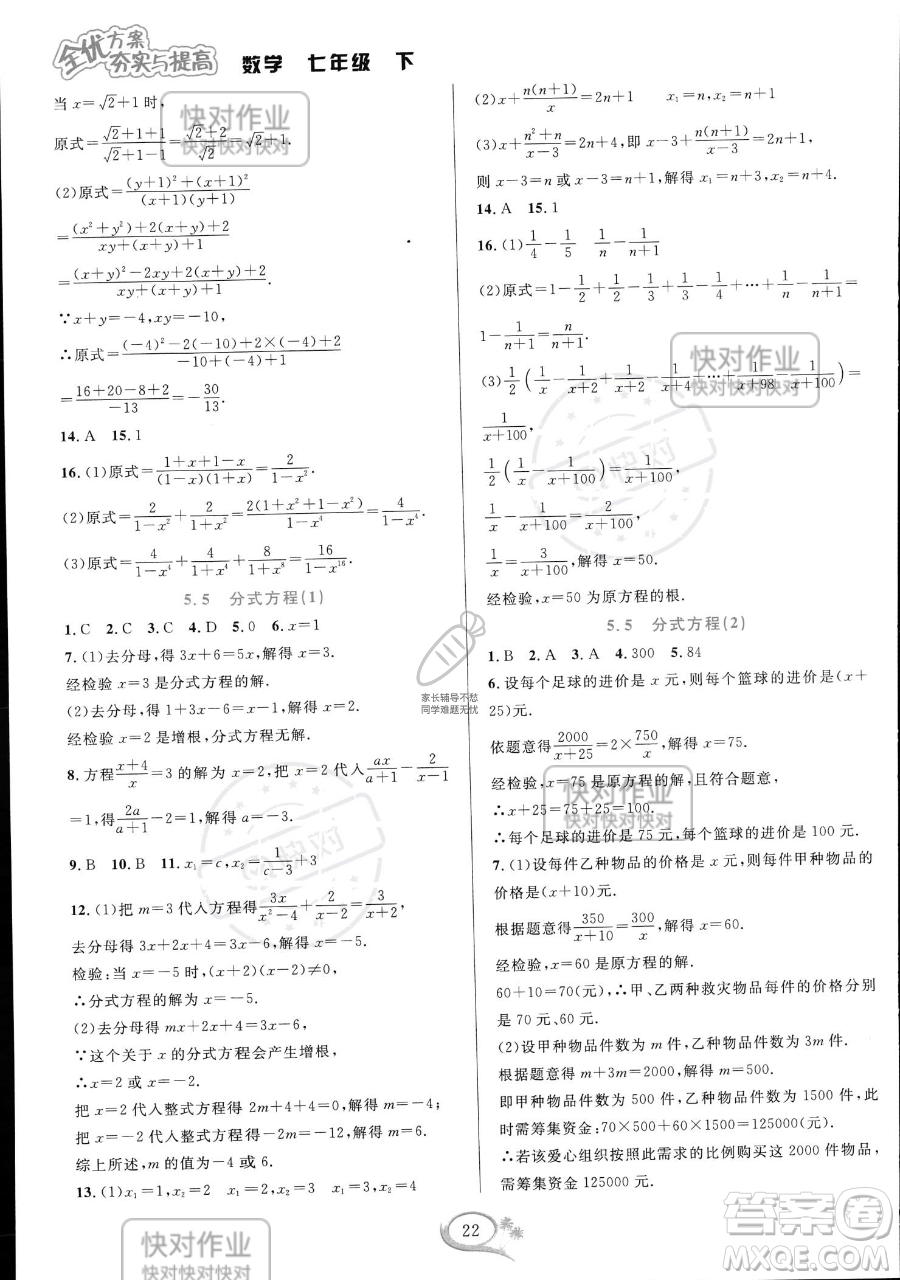 全优方案
夯实与提高 数学 七年级 下
当 x=√2+1时,
原式=(√2+1+1)/(√2+1-1)=(√2+2)/√2=√2+1.
(2)原式=((y+1)²+(x+1)²)/((x+1)(y+1))
=((x²+y²)+2(x+y)+2)/(xy+(x+y)+1)
=((x+y)²-2xy+2(x+y)+2)/(xy+(x+y)+1).
∵x+y=-4,xy=-10,
∴原式=((-4)²-2(-10)+2×(-4)+2)/(-10+(-4)+1)
=(16+20-8+2)/(-13)=-30/13.
14.A 15.1
16.(1)原式=(1+x+1-x)/((1-x)(1+x))=2/(1-x²).
(2)原式=2/(1-x²)+2/(1+x²)=2(1+x²+1-x²)/(1-x⁴)=4/(1-x⁴).
(3)原式=4/(1-x⁴)+4/(1+x⁴)+8/(1+x⁸)=16/(1-x¹⁶).
5.5 分式方程(1)
1.C 2.C 3.C 4.D 5.0 6.x=1
7.(1)去分母,得 3x+6=5x,解得 x=3.
经检验 x=3 是分式方程的解.
(2)去分母,得 1+2x-4=x-1,解得 x=2.
经检验 x=2 是增根,分式方程无解.
8.方程(x+4)/x=3 的解为 x=2,把 x=2 代入ax/(a+1)-2/(x-1)
=1,得2a/(a+1)-2=1,解得 a=-3.
9.B 10.B 11.x₁=c,x₂=1/(c-3)+3
12.(1)把 m=3 代入方程得3x/(x²-4)+2/(x-2)=3/(x+2),
去分母得 3x+2x+4=3x-6,解得 x=-5.
检验:当 x=-5 时,(x+2)(x-2)≠0,
∴分式方程的解为 x=-5.
(2)去分母得 mx+2x+4=3x-6,
∵这个关于 x 的分式方程会产生增根,
∴x=2 或 x=-2.
把 x=2 代入整式方程得 2m+4+4=0,解得 m=-4;
把 x=-2 代入整式方程得-2m=-12,解得 m=6.
综上所述,m 的值为-4或6.
13.(1)x₁=1 x₂=2 x₁=2 x₂=3 x₁=3 x₂=4
(2)x+n(n+1)/x=2n+1 x₁=n x₂=n+1
(3)x+(n²+n)/(x-3)=2n+4,即 x-3+n(n+1)/(x-3)=2n+1,
则 x-3=n 或 x-3=n+1,解得 x₁=n+3,x₂=n+4.
14.A 15.1
16.(1)1/4-1/5 1/n-1/(n+1)
(2)原式=1-1/2+1/2-1/3+1/3-1/4+…+1/n-1/(n+1)=
1-1/(n+1)=n/(n+1).
(3)1/2(1/x-1/(x+2)+1/(x+2)-1/(x+4)+…+1/(x+98)-1/(x+100))=
1/(x+100),
1/2(1/x-1/(x+100))=1/(x+100),
1/x-1/(x+100)=2/(x+100),
1/x=3/(x+100),解得 x=50.
经检验,x=50 为原方程的根.
5.5 分式方程(2)
1.B 2.A 3.A 4.300 5.84
6.设每个足球的进价是 x 元,则每个篮球的进价是(x+
25)元.
依题意得2000/(x+25)=2×750/x,解得 x=75.
经检验,x=75 是原方程的解,且符合题意,
∴x+25=75+25=100.
∴每个足球的进价是 75 元,每个篮球的进价是 100 元.
7.(1)设每件乙种物品的价格是 x 元,则每件甲种物品的
价格是(x+10)元.
根据题意得350/(x+10)=300/x,解得 x=60.
经检验,x=60 是原方程的解.
60+10=70(元),∴甲、乙两种救灾物品每件的价格分别
是 70 元、60 元.
(2)设甲种物品件数为 m 件,则乙种物品件数为 3m 件.
根据题意得 m+3m=2000,解得 m=500.
即甲种物品件数为 500 件,则乙种物品件数为 1500 件,此
时需筹集资金:70×500+60×1500=125000(元).
∴若该爱心组织按照此需求的比例购买这 2000 件物品,
需筹集资金 125000 元.
22
快对作业
快对快对快对
快对作业
快对快对快对
快对作业
快对快对快对
快对作业
快对快对快对
快对
快对
家长辅导不愁
同学难题无忧
答案圈
MXQE.COM